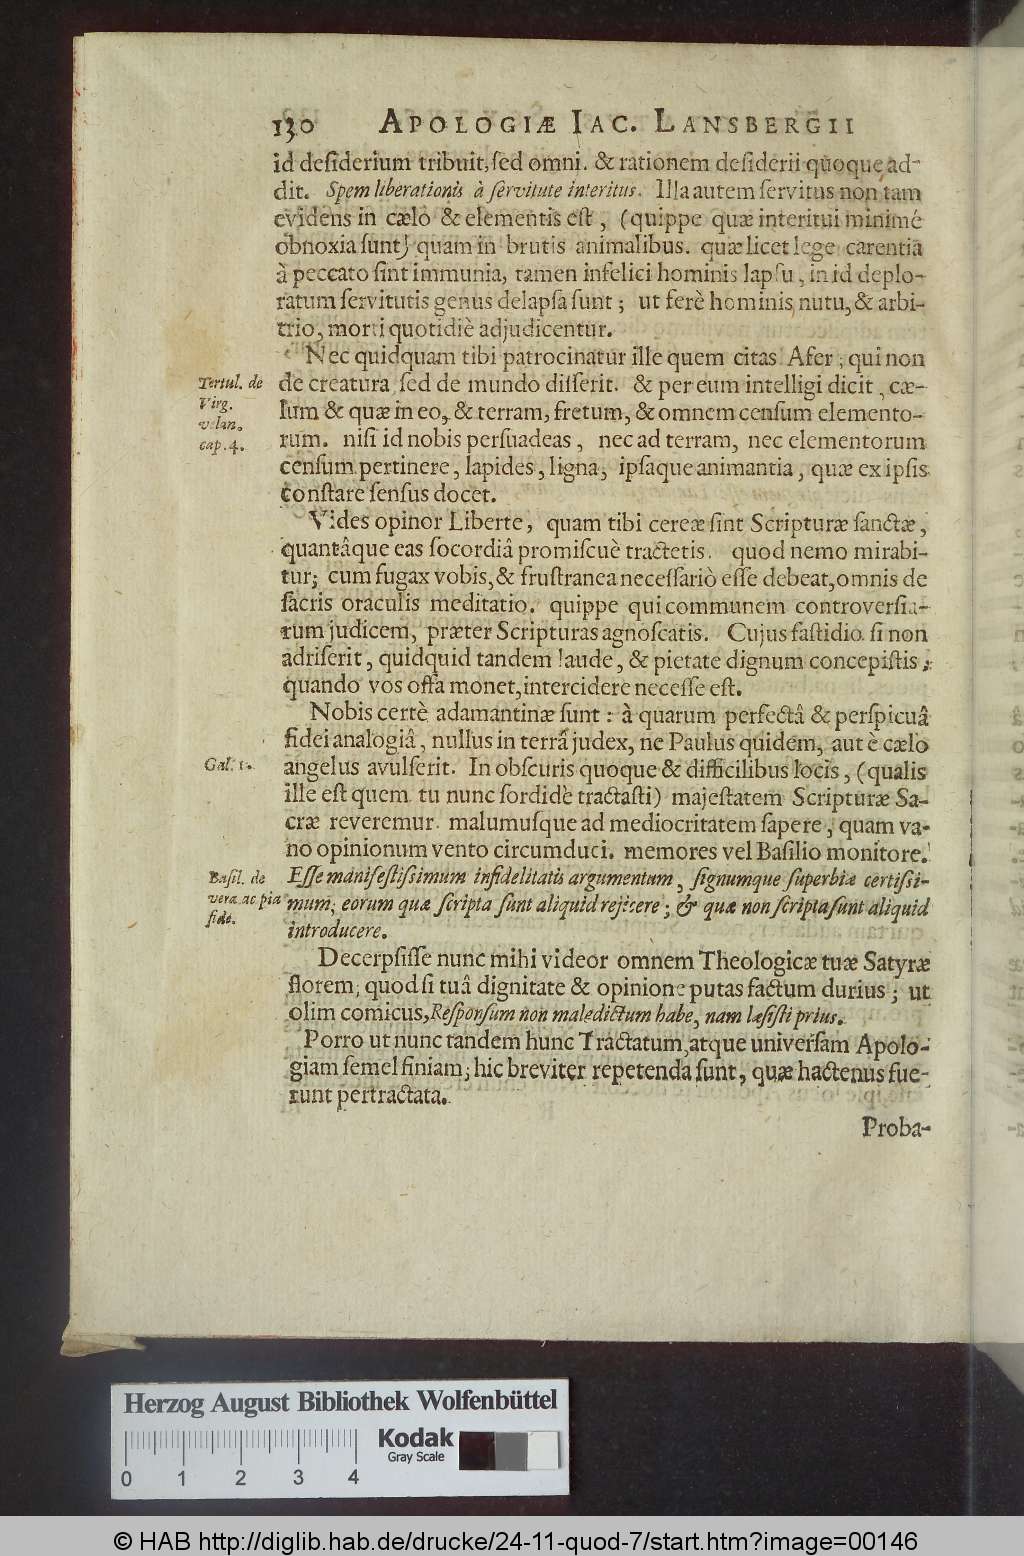 130 APOLOGIÆ IAC. LANSBERGII
id desiderium tribuit, sed omni. & rationem desiderii quoque ad-
dit. Spem liberationis à servitute interitus. Illa autem servitus non tam
evidens in cælo & elementis est, (quippe quæ interitui minimé
obnoxia sunt) quam in brutis animalibus. quæ licet lege carentia
à peccato sint immunia, tamen infelici hominis lapsu, in id deplo-
ratum servitutis genus delapsa sunt; ut ferè hominis nutu, & arbi-
trio, morti quotidiè adjudicentur.
Nec quidquam tibi patrocinatur ille quem citas Afer; qui non
Tertul. de
Virg.
velan.
cap. 4.
de creatura sed de mundo disserit. & per eum intelligi dicit, cæ-
lum & quæ in eo, & terram, fretum, & omnem censum elemento-
rum. nisi id nobis persuadeas, nec ad terram, nec elementorum
censum pertinere, lapides, ligna, ipsaque animantia, quæ ex ipsis
constare sensus docet.
Vides opinor Liberte, quam tibi cereæ sint Scripturæ sanctæ,
quantâque eas socordiâ promiscuè tractetis. quod nemo mirabi-
tur; cum fugax vobis, & frustranea necessariò esse debeat, omnis de
sacris oraculis meditatio. quippe qui communem controversia-
rum judicem, præter Scripturas agnoscatis. Cujus fastidio si non
adriserit, quidquid tandem laude, & pietate dignum concepistis;
quando vos offa monet, intercidere necesse est.
Nobis certè adamantinæ sunt: à quarum perfectâ & perspicuâ
fidei analogiâ, nullus in terrâ judex, ne Paulus quidem, aut è cælo
Gal. 1.
angelus avulserit. In obscuris quoque & difficilibus locis, (qualis
ille est quem tu nunc sordidè tractasti) majestatem Scripturæ Sa-
cræ reveremur. malumusque ad mediocritatem sapere, quam va-
no opinionum vento circumduci. memores vel Basilio monitore.
Basil. de
vera ac pia
fide.
Esse manifestissimum infidelitatis argumentum, signumque superbiæ certissi-
mum, eorum quæ scripta sunt aliquid rejicere; & quæ non scripta sunt aliquid
introducere.
Decerpsisse nunc mihi videor omnem Theologicæ tuæ Satyræ
florem; quod si tuâ dignitate & opinione putas factum durius; ut
olim comicus, Responsum non maledictum habe, nam læsisti prius.
Porro ut nunc tandem hunc Tractatum, atque universam Apolo-
giam semel finiam; hic breviter repetenda sunt, quæ hactenus fue-
runt pertractata.
Proba-
Herzog August Bibliothek Wolfenbüttel
Kodak
Gray Scale
0 1 2 3 4
© HAB http://diglib.hab.de/drucke/24-11-quod-7/start.htm?image=00146